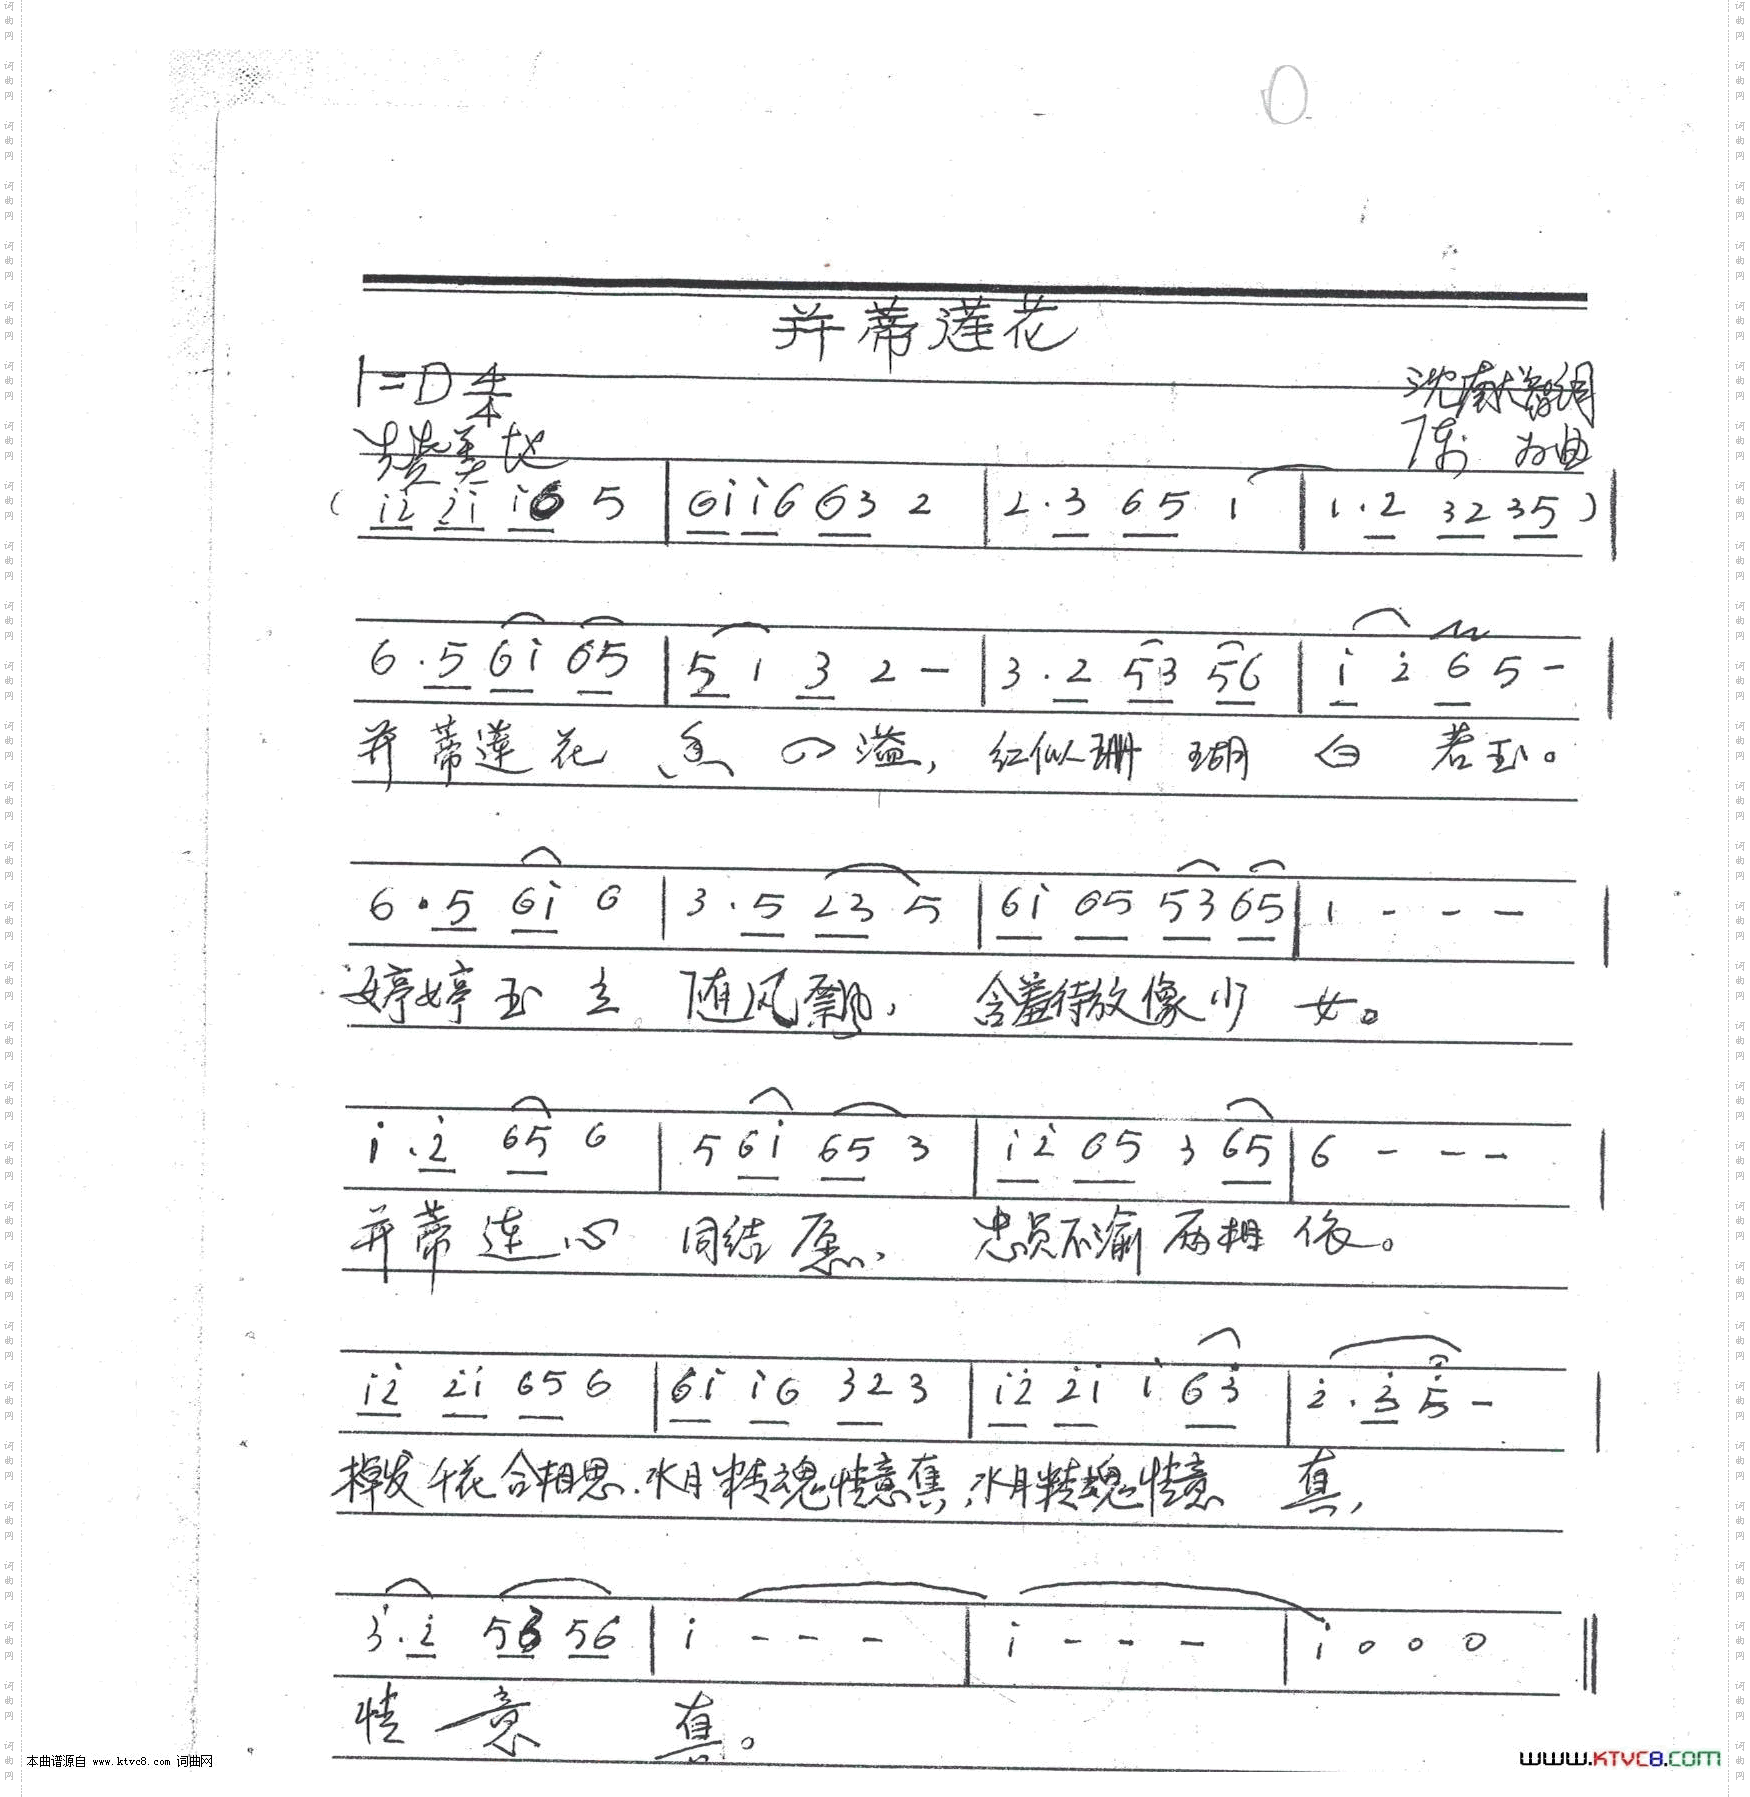 并蒂莲花
1=D 4/4
赞美地
词
陈 为曲
( i̇2̇ 2̇i̇ i̇6 5 | 6i̇ i̇6 63 2 | 2·3 65 1 | 1·2 32 35 ) |
6·5 6i̇ 65 | 5 1 3 2 - | 3·2 53 56 | i̇ 2̇ 6 5 - |
并蒂莲花 香四溢, 红似珊瑚 白若玉。
6·5 6i̇ 6 | 3·5 23 5 | 6i̇ 65 53 65 | 1 - - - |
婷婷玉立 随风飘, 含羞待放像少女。
i̇·2̇ 65 6 | 5 6i̇ 65 3 | i̇2̇ 65 3 65 | 6 - - - |
并蒂连心 同结愿、 忠贞不渝两相依。
i̇2̇ 2̇i̇ 65 6 | 6i̇ i̇6 32 3 | i̇2̇ 2̇i̇ i̇ 63̇ | 2̇·3̇ 5̇ - |
发千花含相思.水月精魂情意真,水月精魂情意 真,
3̇·2̇ 53 56 | i̇ - - - | i̇ - - - | i̇ 0 0 0 ‖
情意 真。
本曲谱源自 www.ktvc8.com 词曲网
www.KTVC8.COM